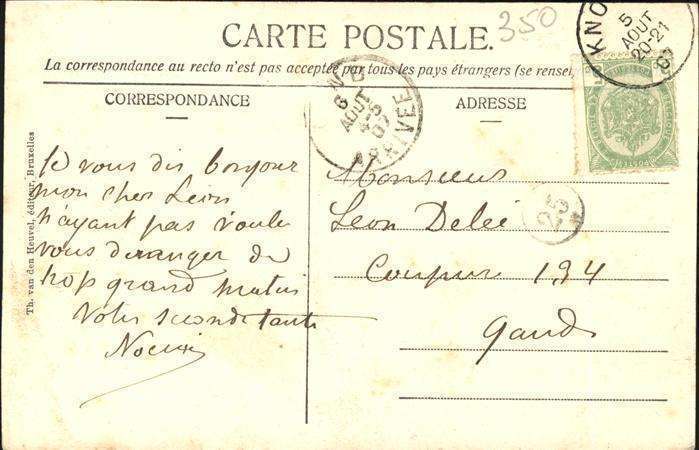 350
CARTE POSTALE.
La correspondance au recto n'est pas acceptée par tous les pays étrangers (se rensei
CORRESPONDANCE
ADRESSE
KNO
5
AOUT
20-21
07
6
AOUT
4-5
07
ARRIVEE
Je vous dis bonjour
mon cher Leon
n'ayant pas voulu
vous deranger de
trop grand matin
Votre seconde tante
25
Monsieur
Leon Delée
Coupure 194
Gand
Th. van den Heuvel, éditeur, Bruxelles